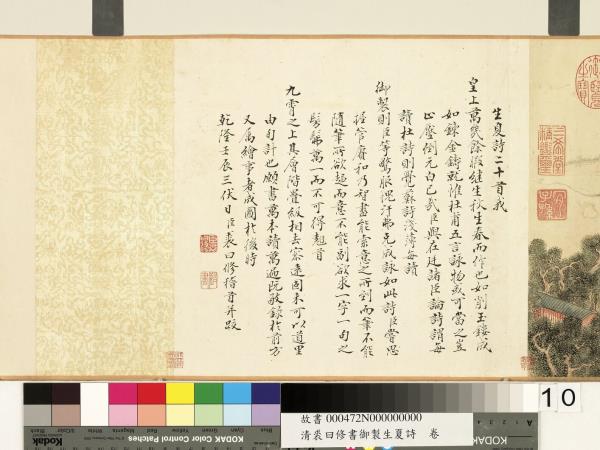 生夏詩二十首我
皇上萬幾餘暇繼生秋生春而作也如削玉鏤成
如鍊金鑄就惟杜甫五言詠物或可當之豈
止壓倒元白已哉臣與在廷諸臣論詩謂每
讀杜詩則覺蘇詩淺薄每讀
御製則臣等驚服愧汗弗克成詠如此詩臣嘗思
搖管賡和乃智盡能索意之所到而筆不能
隨筆所欲赴而意不能副欲求一字一句之
髣髴萬一而不可得翹首
九霄之上其層階疊級相去寥遠固未可以道里
由旬計也願書萬本讀萬遍既敬錄於前方
又屬繪事者成圖於後時
乾隆壬辰三伏日臣裘曰修稽首并跋
10
故書 000472N000000000
清裘曰修書御製生夏詩 卷
KODAK Color Control Patches
Kodak
Blue
Cyan
Green
Yellow
Red
Magenta
White
3/Color
Black